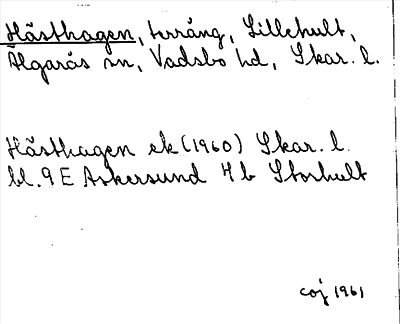 Hästhagen, terräng, Lillehult,
Älgarås sn, Vadsbo hd, Skar. l.
Hästhagen ek (1960) Skar. l.
bl. 9 E Askersund 4 b Storhult
coj 1961